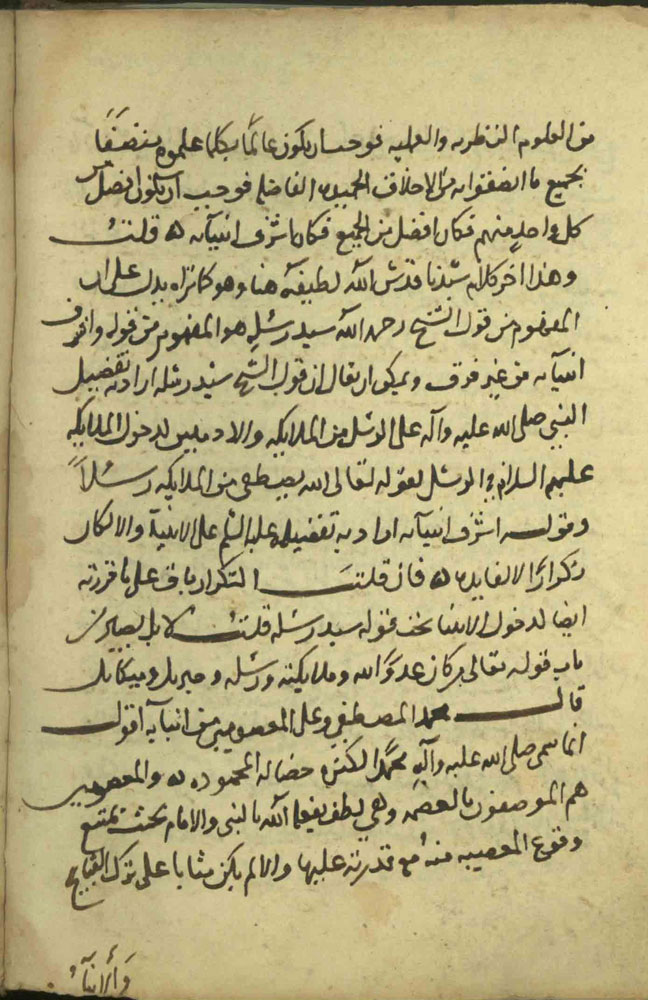 من العلوم النظرية والعملية فوجب ان يكون عالمًا بكلما علموه متصفًا
بجميع ما اتصفوا به من الاخلاق الحميدة الفاضلة فوجب ان يكون افضل من
كل واحد منهم فكان افضل من الجميع فكان اشرف انبيائه ه قلت
وهذا اخر كلام شيخنا قدس الله لطيفه هنا وهو كما تراه يدل على ان
المفهوم من قول الشيخ رحمه الله سيد رسله هو المفهوم من قوله واشرف
انبيائه من غير فرق ويمكن ان يقال ان قول الشيخ سيد رسله اراد به تفضيل
النبي صلى الله عليه وآله على الرسل من الملايكه والادميين لدخول الملايكه
عليهم السلام في الرسل لقوله تعالى الله يصطفى من الملايكه رسلًا
وقوله اشرف انبيائه اراد به تفضيله عليه السلم على الانبياء والا لكان
تكرارًا لا لفايدة ه فان قلت التكرار باق على ما قررته
ايضا لدخول الانبيا تحت قوله سيد رسله قلت لا بل يصير من
باب قوله تعالى من كان عدوًا لله وملايكته ورسله وجبريل وميكايل
قال محمد المصطفى وعلى المعصومين من انبيائه اقول
انما سمى صلى الله عليه وآله محمدًا لكثرة خصاله المحموده ه والمعصومين
هم الموصفون بالعصمه وهي لطف يفعله الله بالنبى والامام بحيث يمتنع
وقوع المعصيه منه مع قدرته عليها والا لم يكن مثابا على ترك القبايح
والانبياء